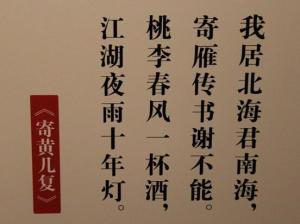 我居北海君南海,
寄雁传书谢不能。
桃李春风一杯酒,
江湖夜雨十年灯。
《寄黄几复》